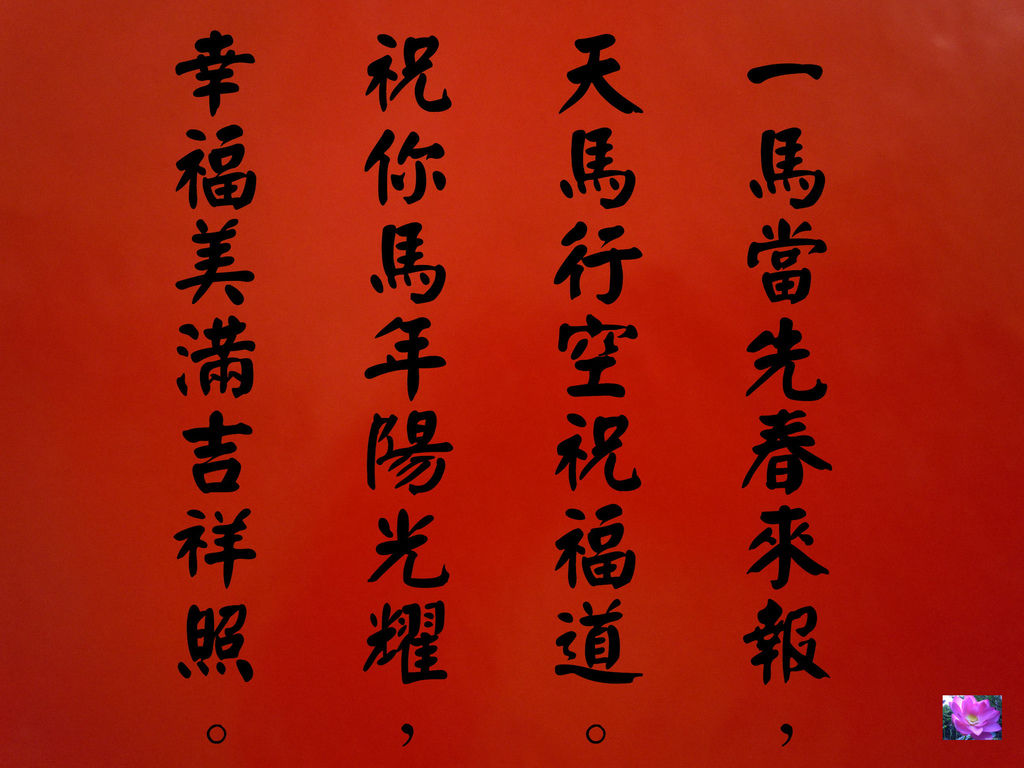 一馬當先春來報，
天馬行空祝福道。
祝你馬年陽光耀，
幸福美滿吉祥照。